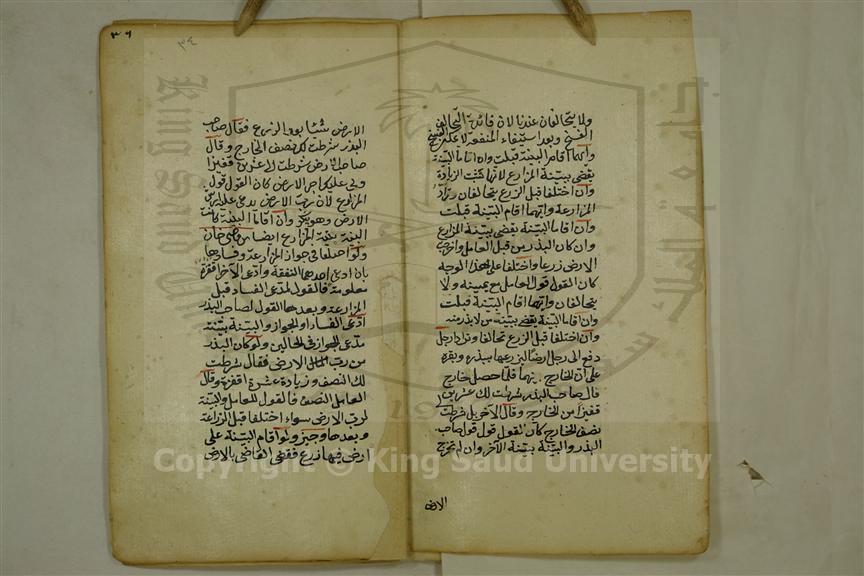 ولا يتحالفان عندنا لان فائدة التحالف
الفسخ وبعد استيفاء المنفعة لا يمكن الفسخ
وايهما اقام البينة قبلت وان اقاما البينة
يقضى ببينة المزارع لانها تثبت الزيادة
وان اختلفا قبل الزرع يتحالفان وترادّا
المزارعة وايهما اقام البينة قبلت
وان اقاما البينة يقضى ببينة المزارع
وان كان البذر من قبل العامل واخرجت
الارض زرعا واختلفا على هذا الوجه
كان القول قول العامل مع يمينه ولا
يتحالفان وايهما اقام البينة قبلت
وان اقاما البينة يقضى ببينة من لا بذر منه
وان اختلفا قبل الزرع تحالفا وترادا رجل
دفع الى رجل ارضا ليزرعها ببذره وبقره
على ان الخارج بينهما فلما حصل الخارج
قال صاحب البذر شرطت لك عشرين
قفيزا من الخارج وقال الاخر بل شرطت
نصف الخارج كان القول قول صاحب
البذر والبينة بينة الآخر وان لم تخرج
الارض
٣٦
٣٤
الارض شيئا بعد الزرع فقال صاحب
البذر شرطت لك نصف الخارج وقال
صاحب الارض شرطت لي عشرين قفيزا
ولي عليك اجر الارض كان القول قول
المزارع لان رب الارض يدعى عليه اجر
الارض وهو ينكر وان اقاما البينة كانت
البينة بينة المزارع ايضا من قاضى خان
ولو اختلفا في جواز المزارعة وفسادها
بان ادعى احدهما النفقة وادعى الآخر اقفزة
معلومة فالقول لمدعى الفساد قبل
المزارعة وبعدها القول لصاحب البذر
ادعى الفساد او الجواز والبينة بينة
مدعى الجواز في الحالين ولو كان البذر
من رب الارض فقال شرطت
لك النصف وزيادة عشرة اقفزة وقال
العامل النصف فالقول للعامل والبينة
لرب الارض سواء اختلفا قبل الزراعة
وبعدها وجيز ولو اقام البينة على
ارض فيها زرع فقضى القاضى بالارض
Copyright © King Saud University